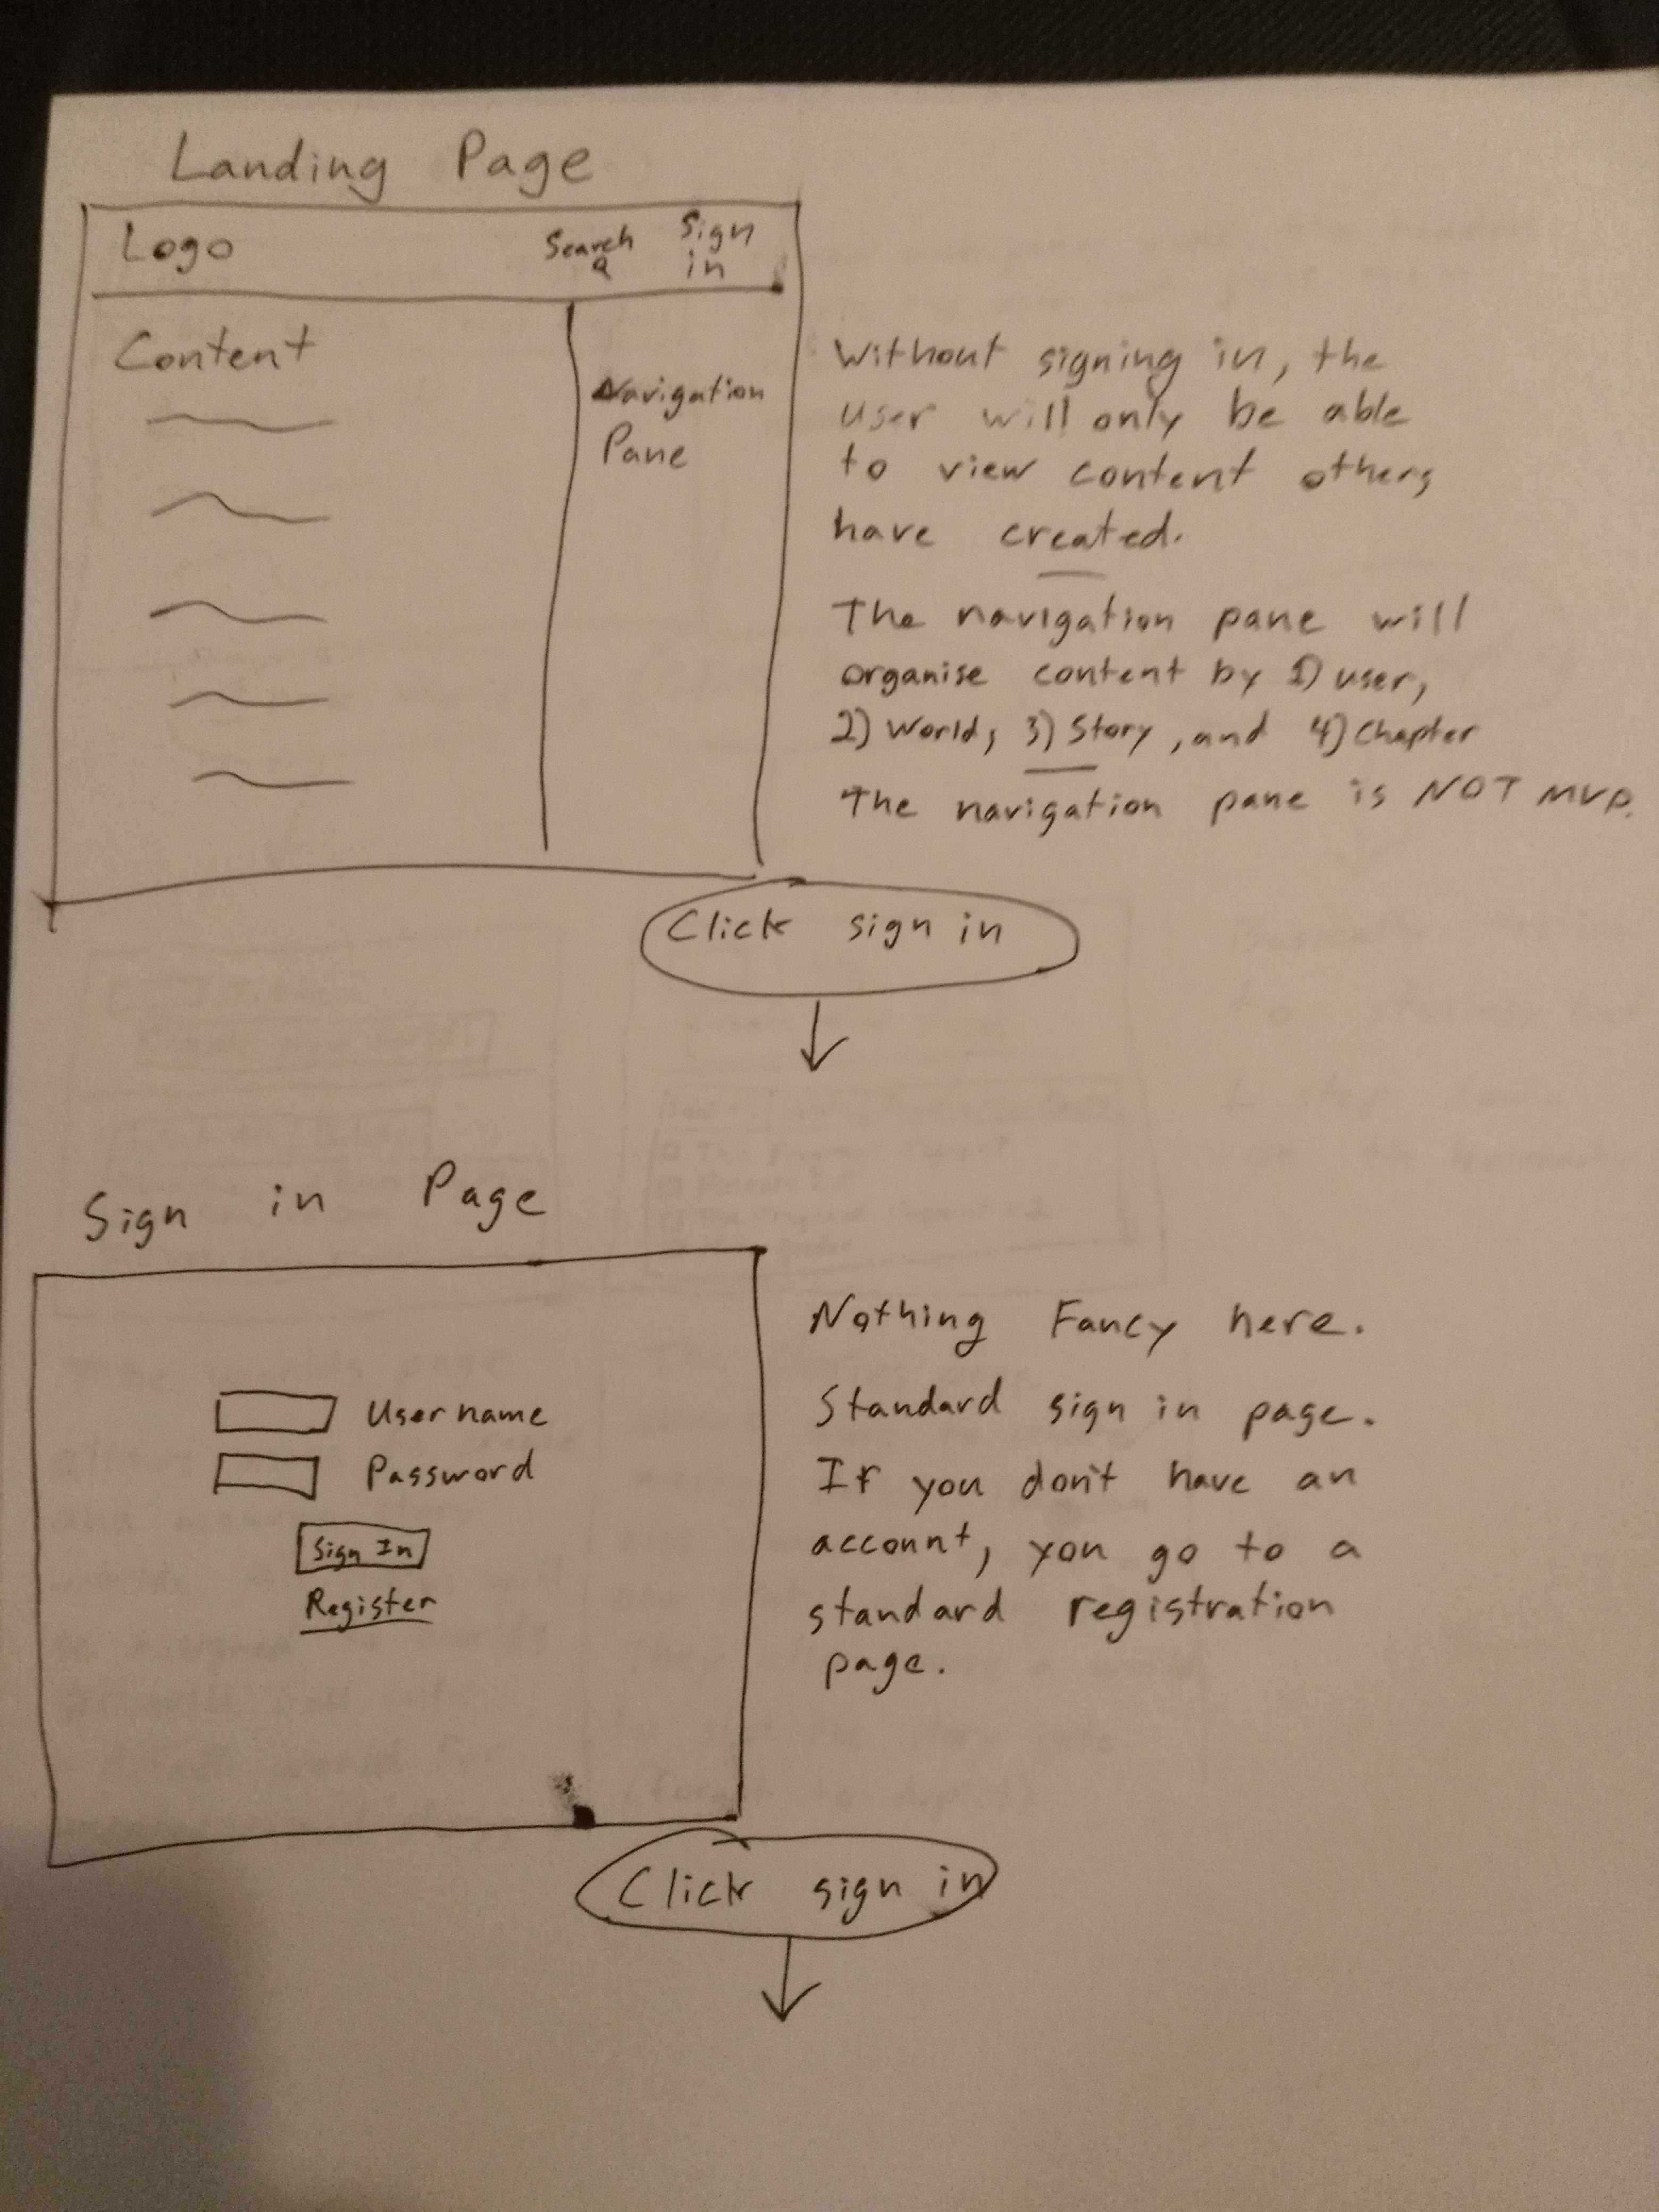 Landing Page
Logo
Search
Sign
in
Content
Navigation
Pane
Without signing in, the
user will only be able
to view content others
have created.
The navigation pane will
organise content by 1) user,
2) World, 3) Story, and 4) Chapter
The navigation pane is NOT MVP.
Click sign in
Sign in Page
Username
Password
Sign In
Register
Nothing Fancy here.
Standard sign in page.
If you don't have an
account, you go to a
standard registration
page.
Click sign in